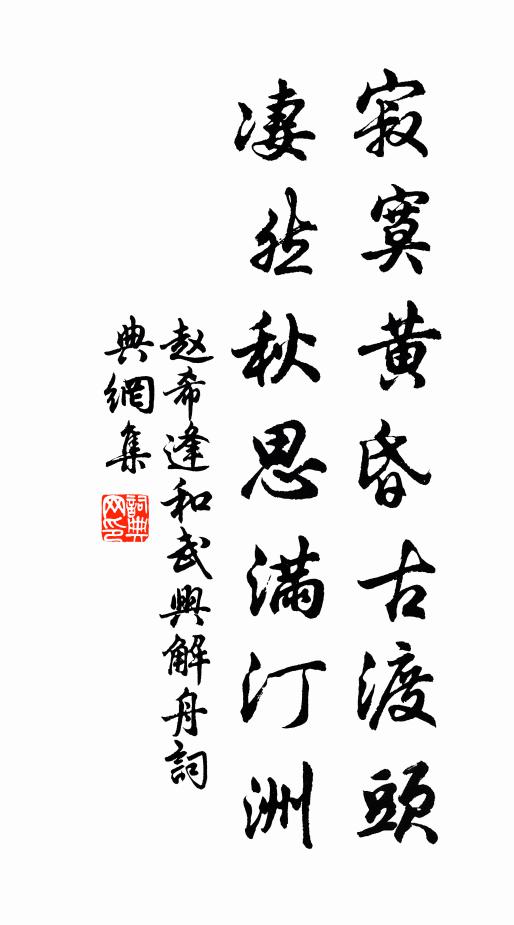 寂寞黄昏古渡頭
淒然秋思滿汀洲
赵希逢和武興解舟詞
典網集
詞典网印